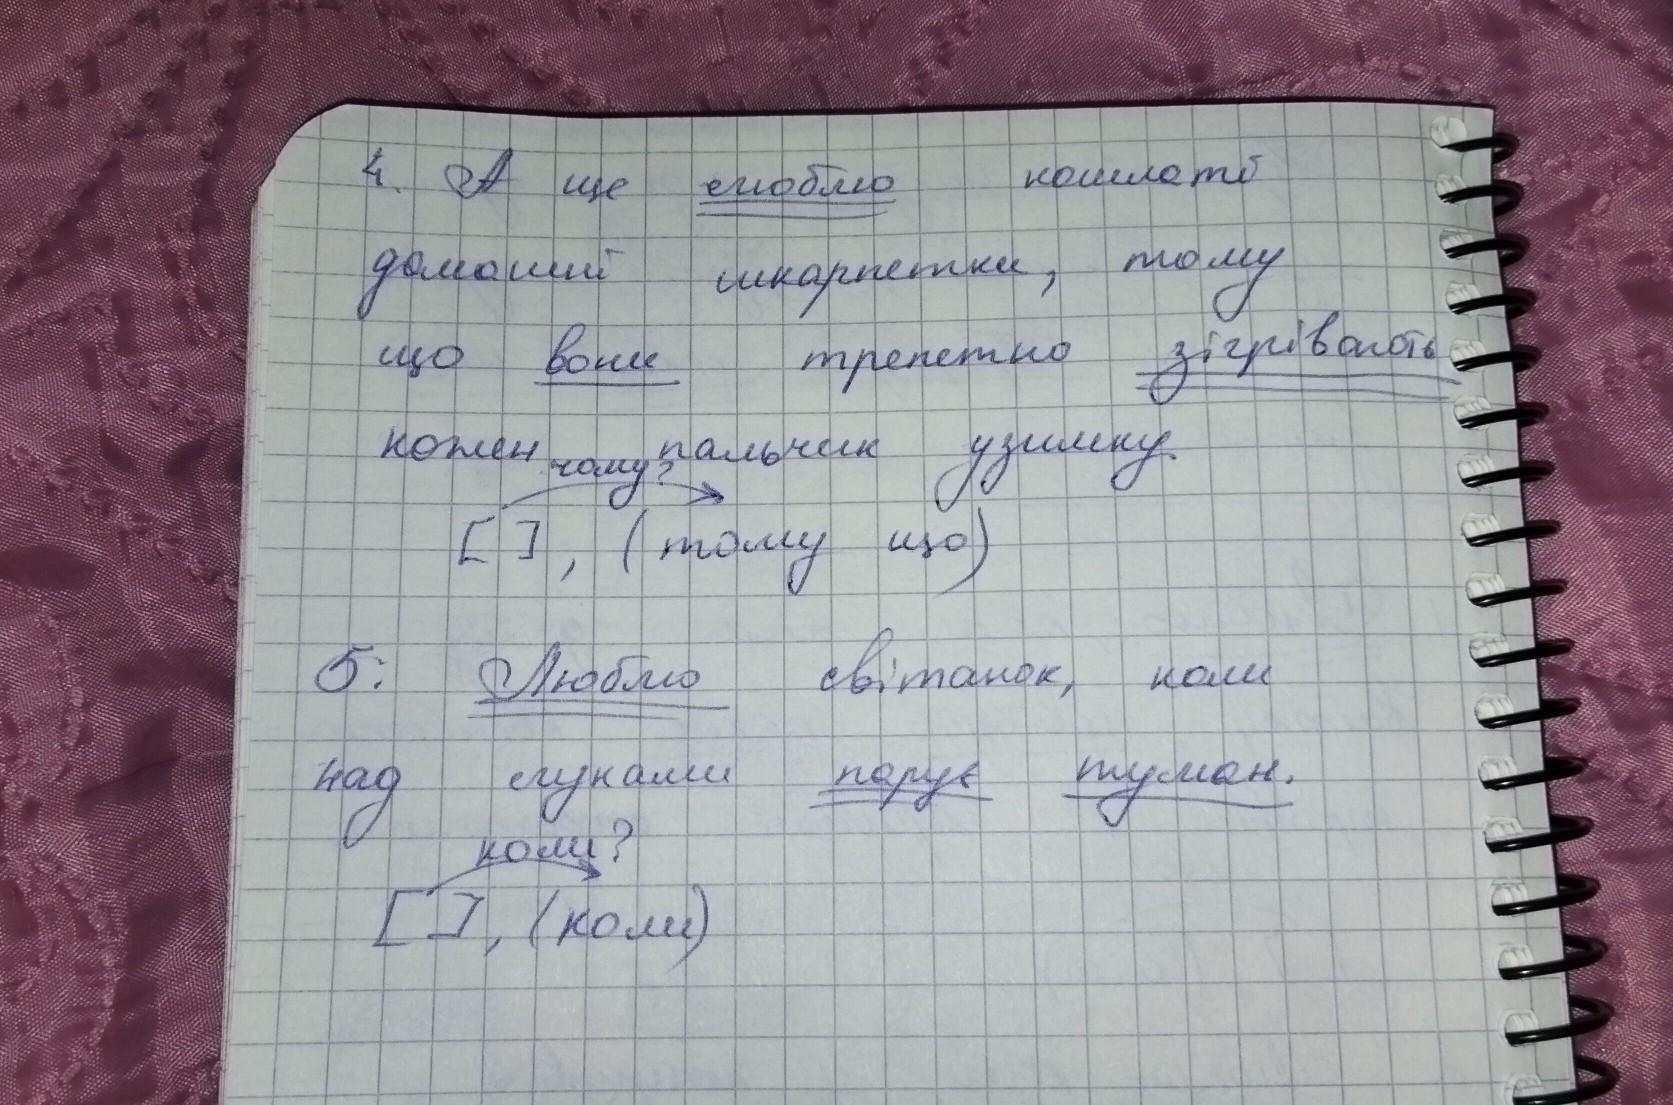 4. А ще люблю кошлаті
домашні шкарпетки, тому
що вони трепетно зігрівають
кожен пальчик узимку.
чому?
[ ], (тому що)
5. Люблю світанок, коли
над луками парує туман.
коли?
[ ], (коли)